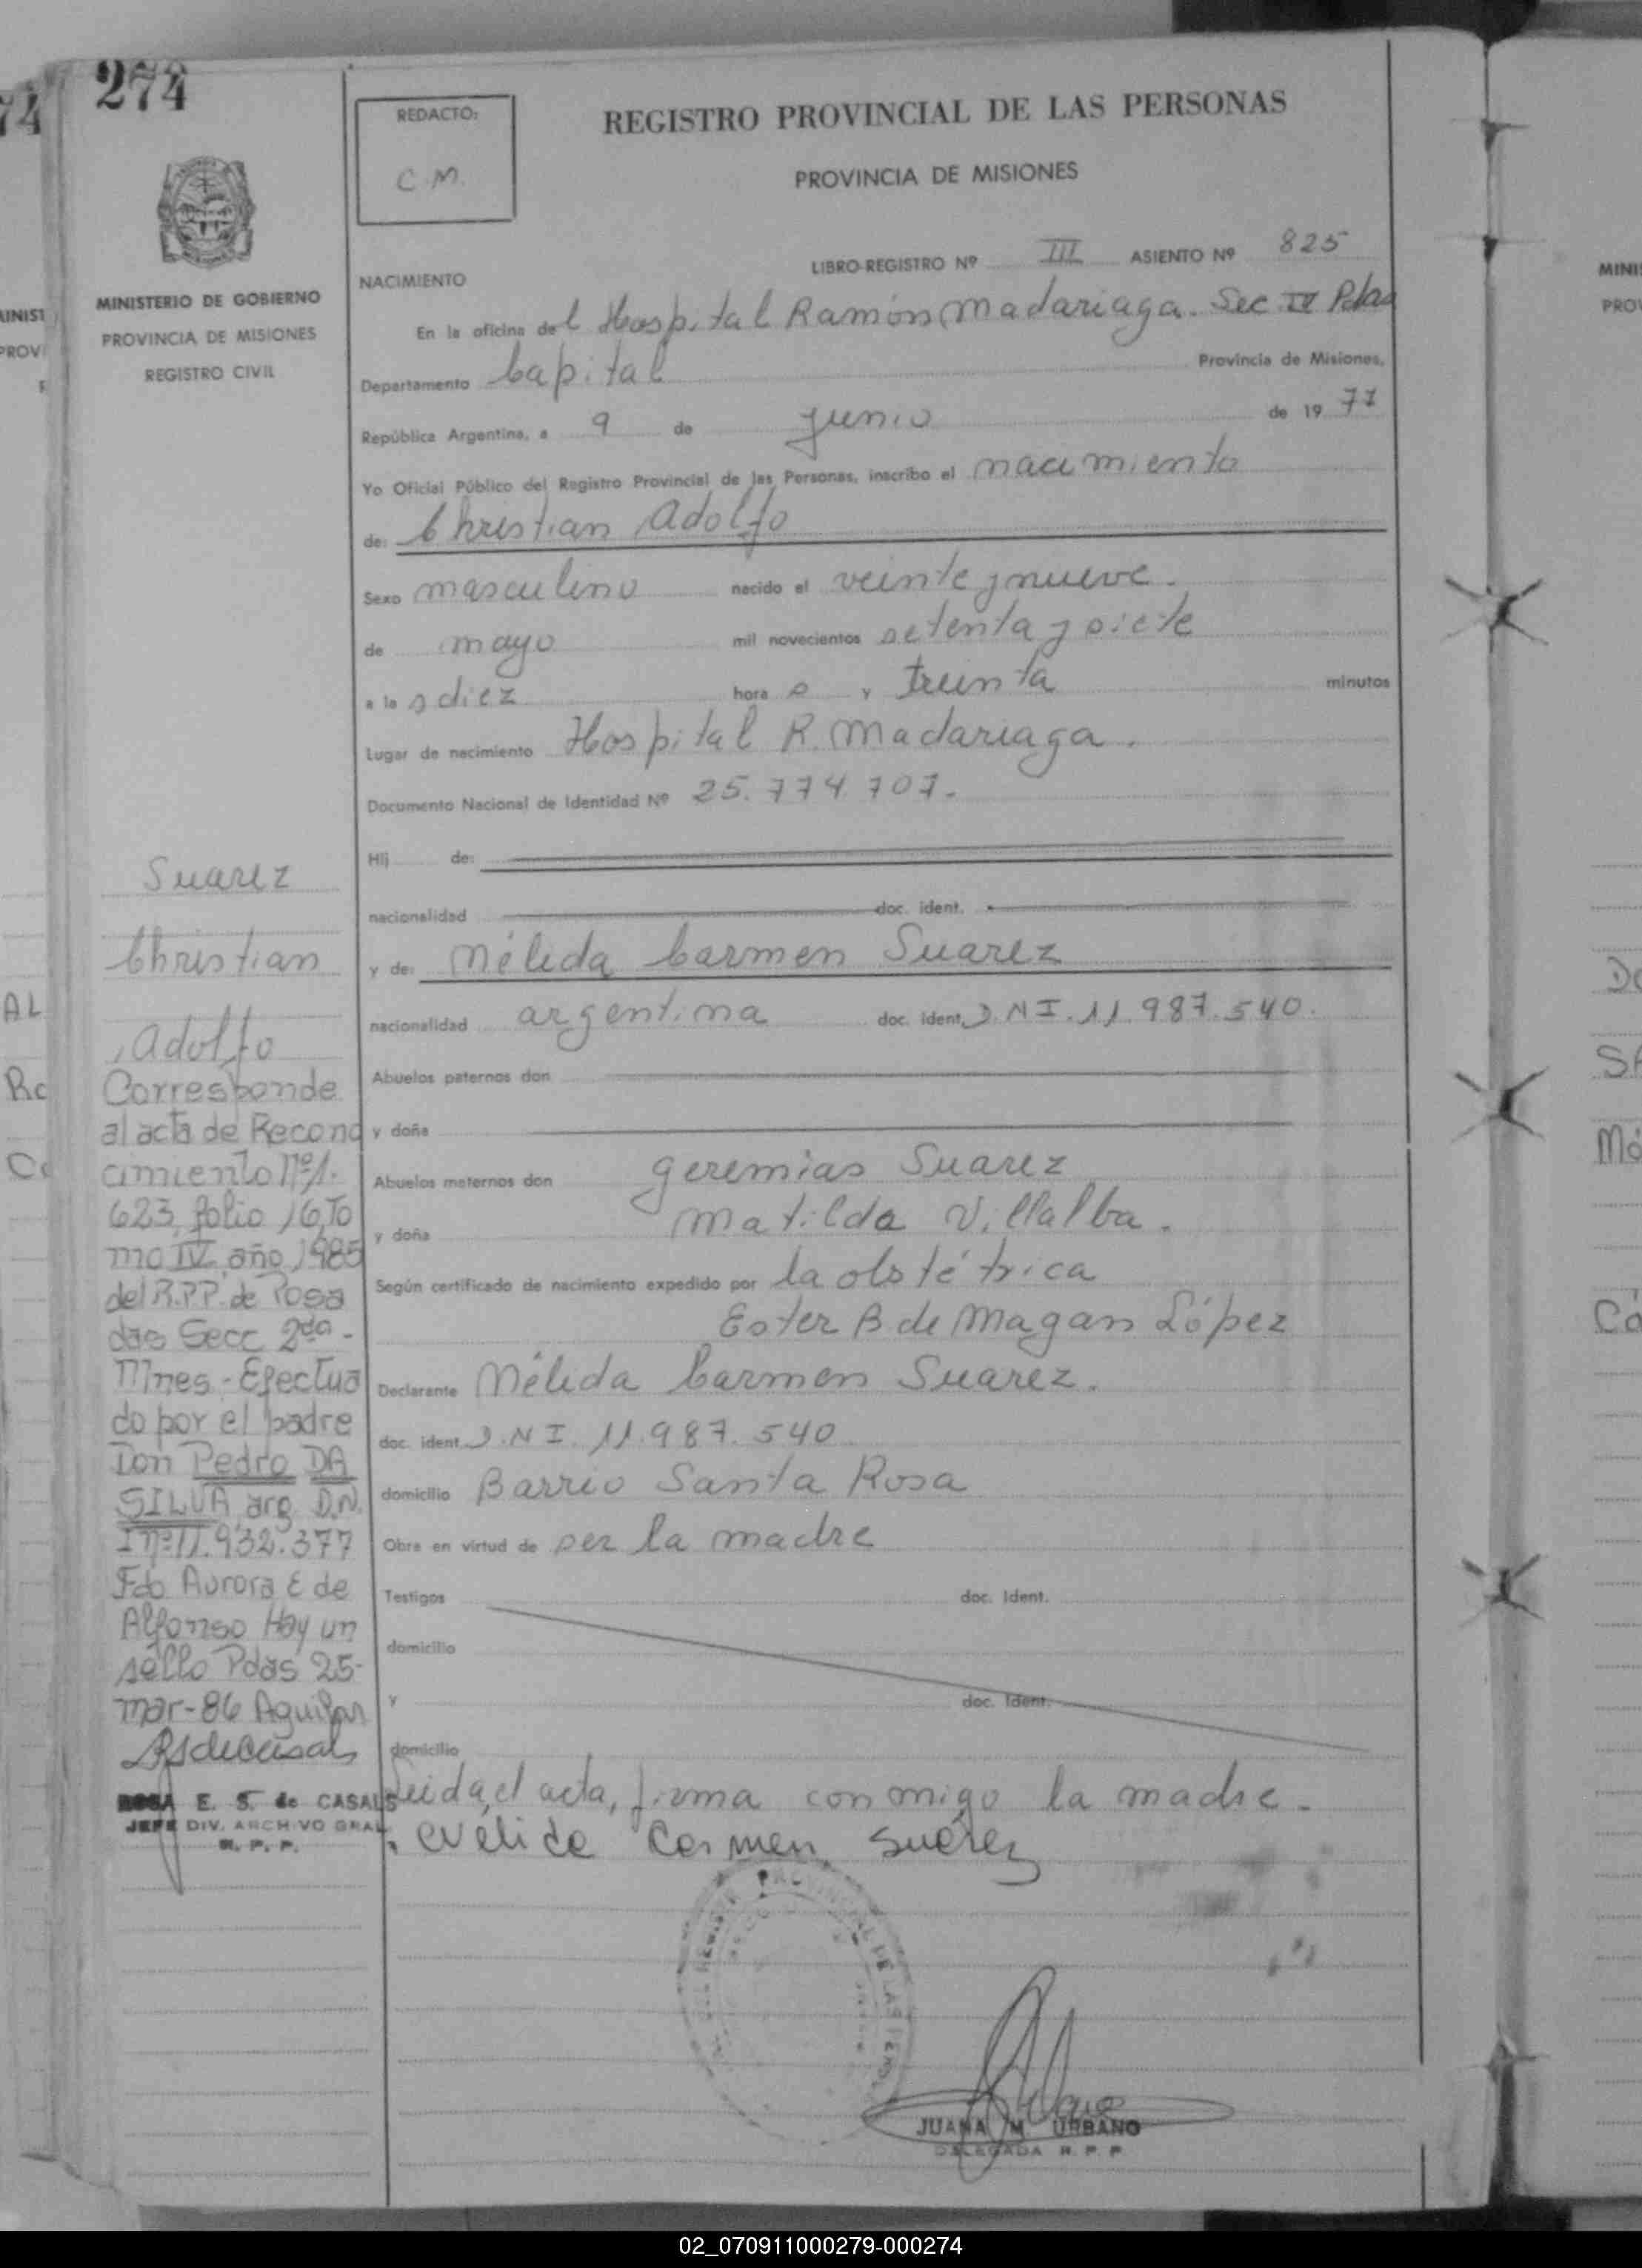 274
REDACTO:
C.M.
REGISTRO PROVINCIAL DE LAS PERSONAS
PROVINCIA DE MISIONES
MINISTERIO DE GOBIERNO
PROVINCIA DE MISIONES
REGISTRO CIVIL
LIBRO-REGISTRO Nº III ASIENTO Nº 825
NACIMIENTO
En la oficina del Hospital Ramón Madariaga. Sec IV Pdas
Departamento Capital Provincia de Misiones,
República Argentina, a 9 de Junio de 1977
Yo Oficial Público del Registro Provincial de las Personas, inscribo el nacimiento
de: Christian Adolfo
Sexo masculino nacido el veinte y nueve.
de mayo mil novecientos setenta y siete
a las diez horas y treinta minutos
Lugar de nacimiento Hospital R. Madariaga.
Documento Nacional de Identidad Nº 25.774.707.-
Hij de:
nacionalidad doc. ident.
y de: Nélida Carmen Suarez
nacionalidad argentina doc. ident. D.N.I. 11.987.540.
Abuelos paternos don
y doña
Abuelos maternos don Geremias Suarez
y doña Matilda Villalba.
Según certificado de nacimiento expedido por la obstétrica
Ester B de Magan López
Declarante Nélida Carmen Suarez.
doc. ident. D.N.I. 11.987.540
domicilio Barrio Santa Rosa
Obra en virtud de ser la madre
Testigos doc. Ident.
domicilio
y doc. Ident.
domicilio
Leida el acta, firma conmigo la madre.
Nelida Carmen Suarez
Suarez
Christian
Adolfo
Corresponde
al acta de Recono
cimiento Nº1.
623, folio 16, To
mo IV, año 1985
del R.P.P. de Posa
das Secc 2da.-
Mnes.- Efectua
do por el padre
Don Pedro DA
SILVA, arg. D.N.
I nº11.932.377
Fdo Aurora E de
Alfonso Hay un
sello Pdas 25-
mar-86 Aguilar
ROSA E. S. de CASALS
JEFE DIV. ARCHIVO GRAL.
R. P. P.
PROVINCIAL DE LAS
JUANA M. URBANO
DELEGADA R. P. P.
02_070911000279-000274